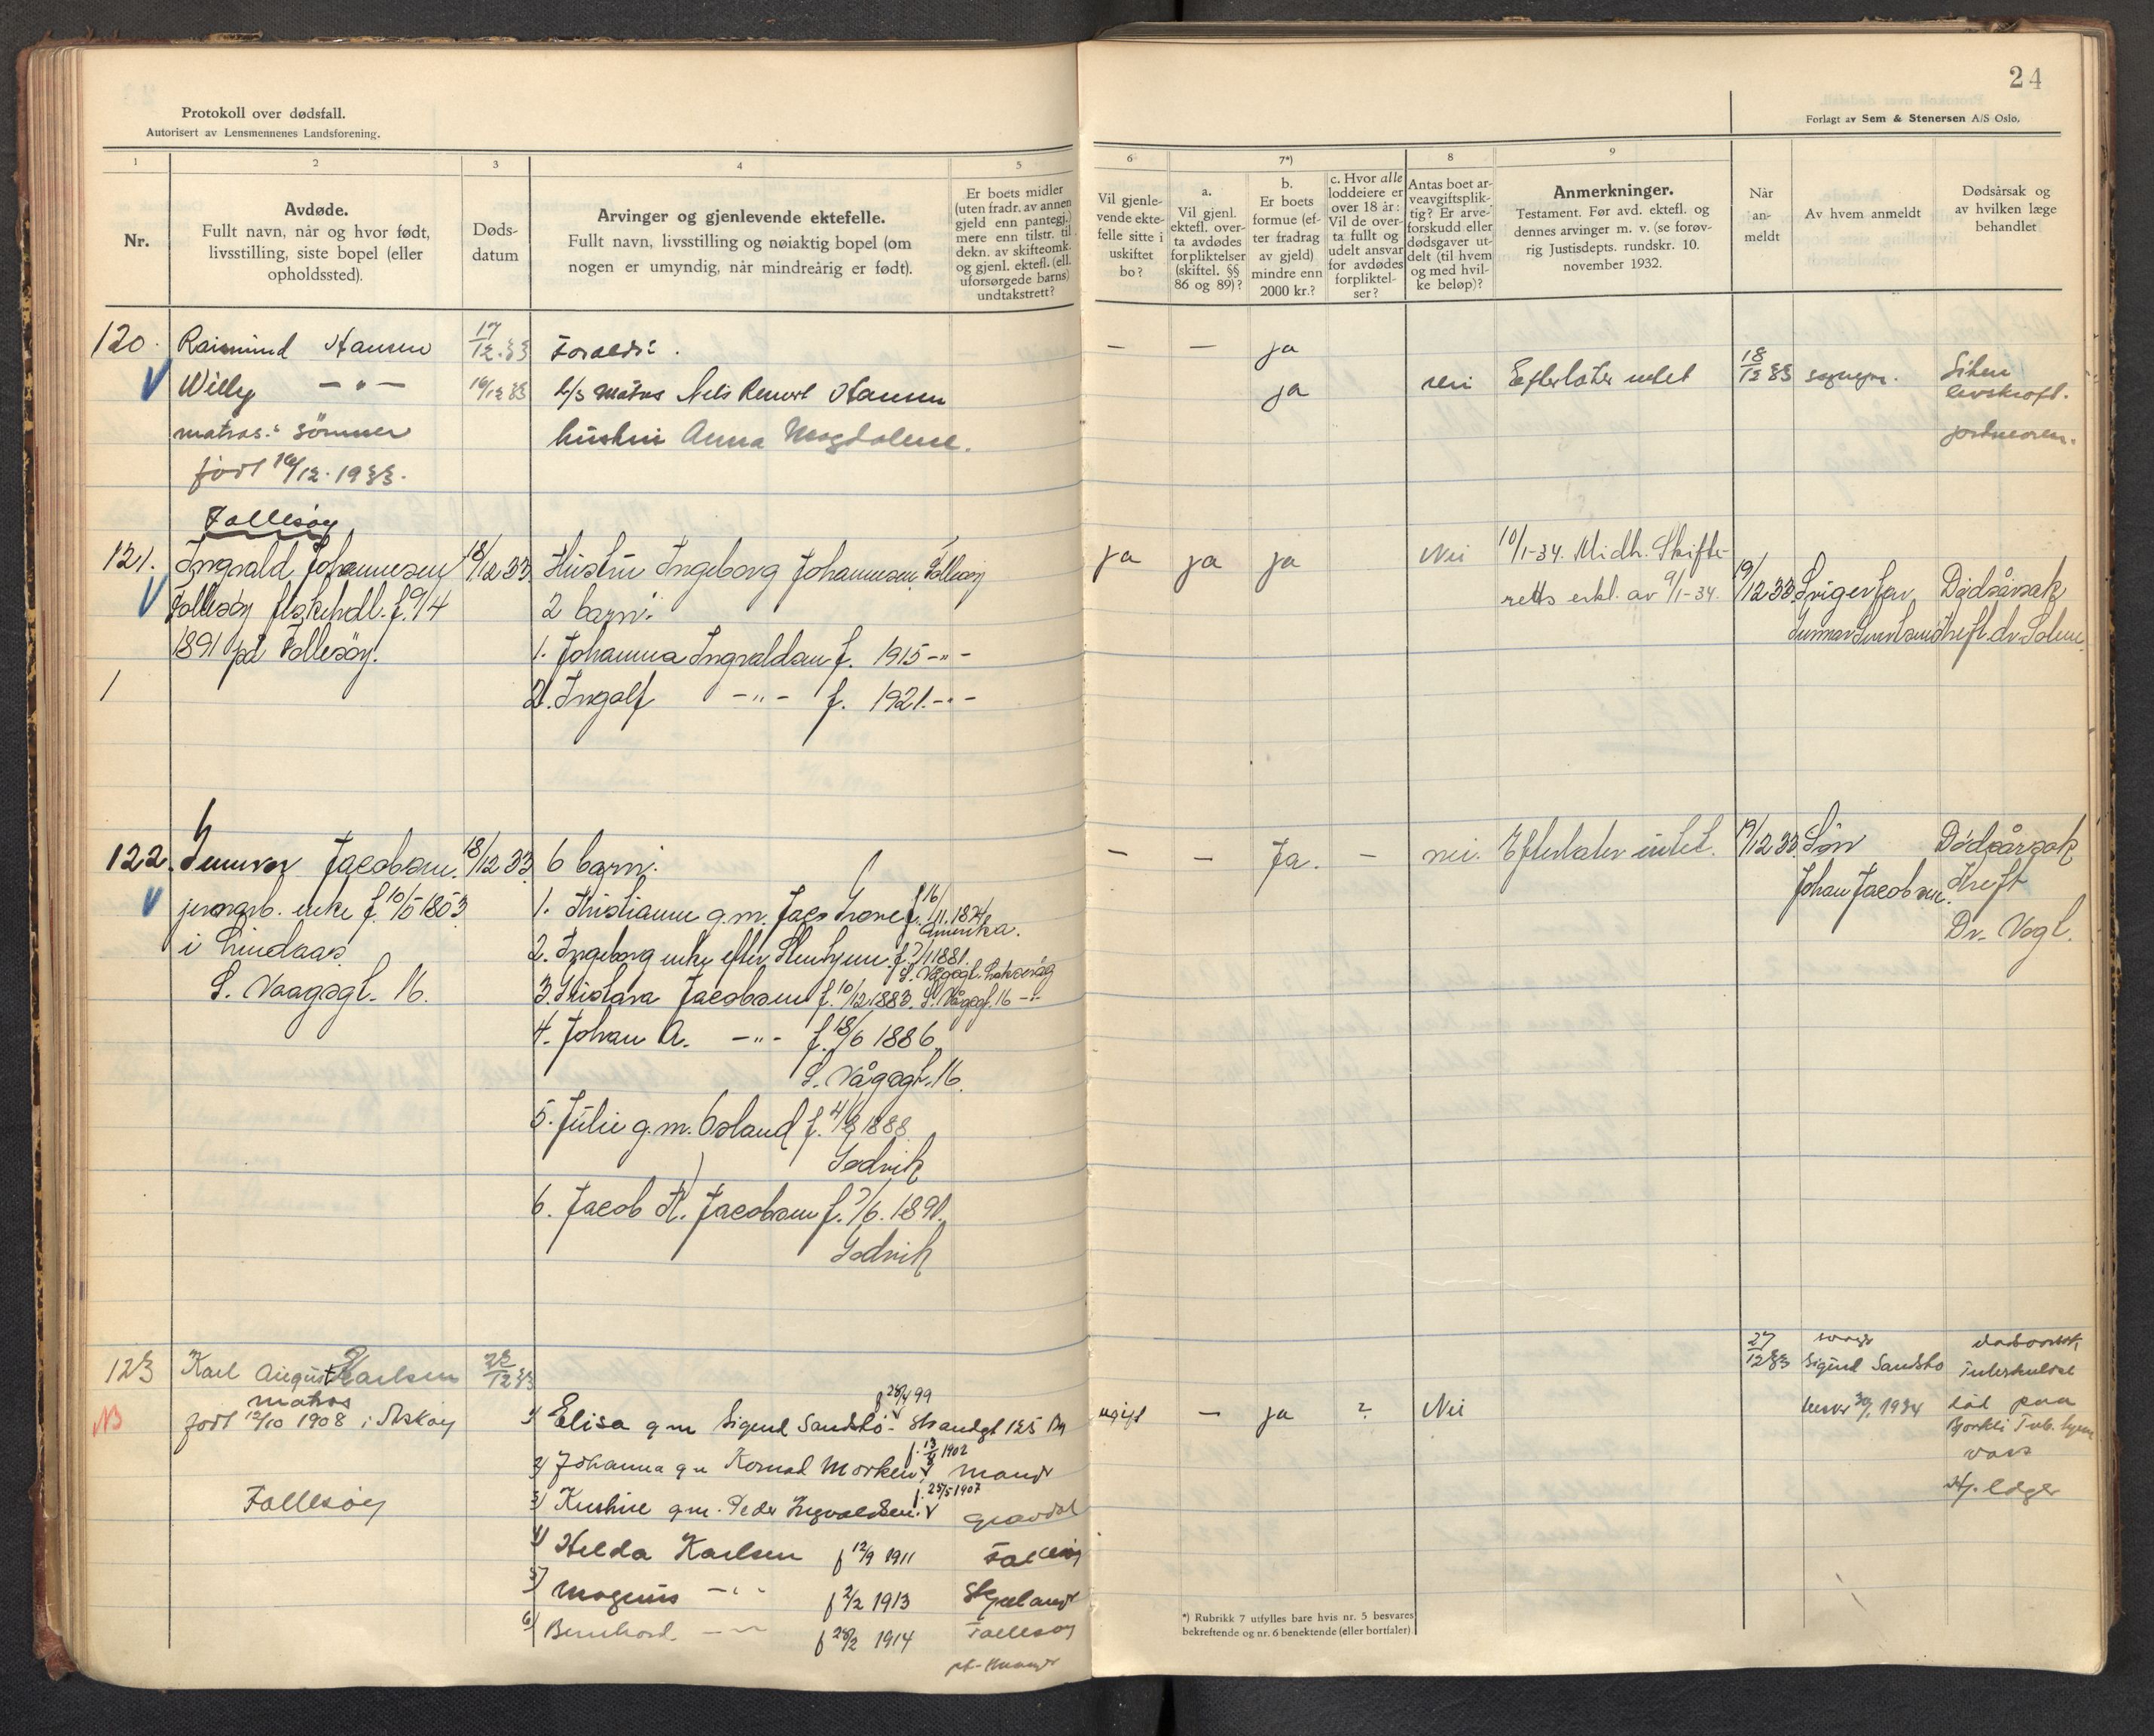 24
Protokoll over dødsfall.
Autorisert av Lensmennenes Landsforening.
Forlagt av Sem & Stenersen A/S Oslo.
1
2
3
4
5
6
7*)
8
9
Nr.
Avdøde.
Fullt navn, når og hvor født,
livsstilling, siste bopel (eller
opholdssted).
Døds-
datum
Arvinger og gjenlevende ektefelle.
Fullt navn, livsstilling og nøiaktig bopel (om
nogen er umyndig, når mindreårig er født).
Er boets midler
(uten fradr. av annen
gjeld enn pantegj.)
mere enn tilstr. til
dekn. av skifteomk.
og gjenl. ektefl. (ell.
uforsørgede barns)
undtakstrett?
Vil gjenle-
vende ekte-
felle sitte i
uskiftet
bo?
a.
Vil gjenl.
ektefl. over-
ta avdødes
forpliktelser
(skiftel. §§
86 og 89)?
b.
Er boets
formue (ef-
ter fradrag
av gjeld)
mindre enn
2000 kr.?
c. Hvor alle
loddeiere er
over 18 år:
Vil de over-
ta fullt og
udelt ansvar
for avdødes
forpliktel-
ser?
Antas boet ar-
veavgiftsplik-
tig? Er arve-
forskudd eller
dødsgaver ut-
delt (til hvem
og med hvil-
ke beløp)?
Anmerkninger.
Testament. Før avd. ektefl. og
dennes arvinger m. v. (se forøv-
rig Justisdepts. rundskr. 10.
november 1932.
Når
an-
meldt
Av hvem anmeldt
Dødsårsak og
av hvilken læge
behandlet
120.
Raimund Hansen
17/12.33
Foreldre.
— — ja
Willy — " —
16/12 33
Nels Hansen
ja
Efterlater intet
18/12 33
Liten
livskraft.
matros. sønner
hustru Anna Magdalene.
jordmoren.
født 16/12. 1933.
Follesøy
121.
Ingvald Johannesen
18/12 33
Hustru Ingeborg Johannesen, Follesøy
ja ja ja
Nei
10/1-34. Midh. Skifte-
retts erkl. av 9/1-34.
19/12 33.
Svigerfar
Dødsårsak
Follesøy fiskehdl. f. 9/4
2 barn:
Kreft. dr. Solem.
1891 på Follesøy.
1. Johanna Ingvaldsen f. 1915 -"-
1
2. Ingolf -"- f. 1921. -"-
122.
Gunvor Jacobsen.
18/12 33
6 barn:
— — Ja. —
nei.
Efterlater intet.
19/12 33.
Søn
Johan Jacobsen.
Dødsårsak
Kreft
Dr. Vogl.
enke f. 10/5 1853
i Lindaas
S. Vaagsgt. 16.
1. Kristianne g.m. f. 16/11. 1874
Amerika.
2. Ingeborg enke efter f. ?/1 1881.
S. Vågsgt. Laksevåg
3. Jacobsen f. 10/12 1883. S. Vågsgt. 16 -"-
4. Johan A. -"- f. 18/6 1886
S. Vågsgt. 16.
5. Julie g.m. Osland f. 4/9 1888
Godvik
6. Jacob K. Jacobsen f. ?/6. 1891.
Godvik
123
Karl August Karlsen
22/12 33
matros
født 12/10 1908 i Askøy
Follesøy
f 28/4 99
1) Elisa g m Sigurd Sandstø - Strandgt 125 Bg
f. 13/8 1902
2) Johanna g m Konrad Morken
f. 25/5 1907
3) g.m. Peder Ingvaldsen. Gravdal
4) Helda Karlsen f 12/9 1911 Follesøy
5) Magnus -"- f 2/2 1913
6) Bernhard. -"- f 28/2 1914 Follesøy
ugift — ja ?
Nei
27/12 33
Sigurd Sandstø
1934
dødsårsak
Tuberkulose
død paa
Tub. hjem
*) Rubrikk 7 utfylles bare hvis nr. 5 besvares
bekreftende og nr. 6 benektende (eller bortfaler)